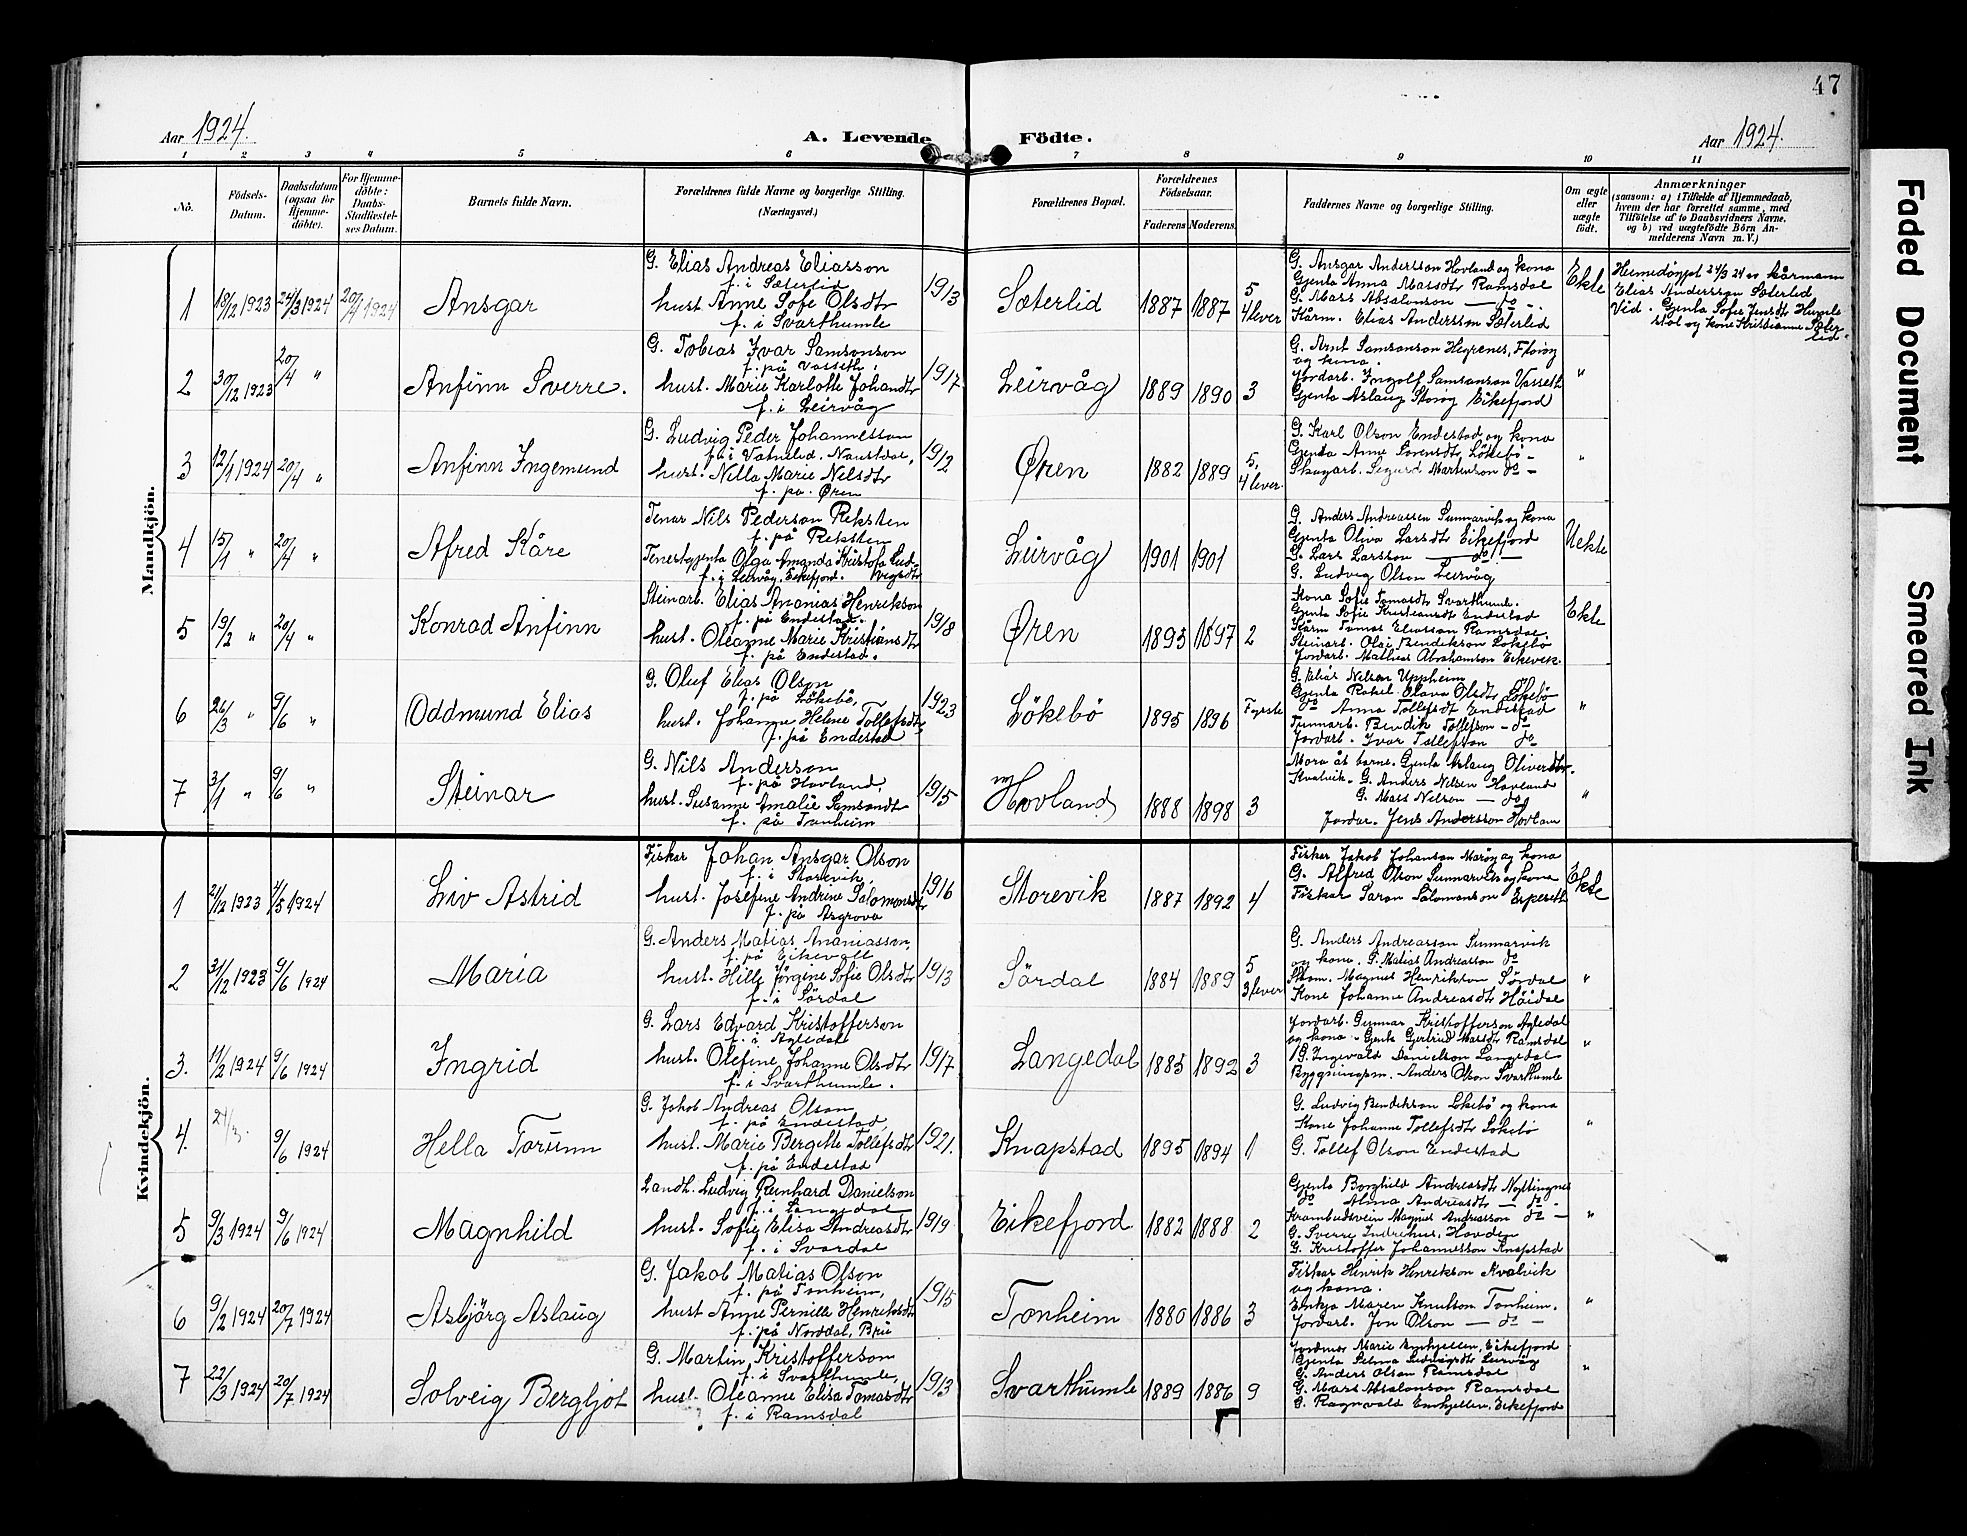 47
Aar 1924.
A. Levende Födte.
Aar 1924.
1 2 3 4 5 6 7 8 9 10 11
No. Födsels-Datum. Daabsdatum (ogsaa for Hjemme-döbte). For Hjemme-döbte: Daabs-Stadfæstel-ses Datum. Barnets fulde Navn. Forældrenes fulde Navne og borgerlige Stilling. (Næringsvei.) Forældrenes Bopæl. Forældrenes Födselsaar. Faderens Moderens. Faddernes Navne og borgerlige Stilling. Om ægte eller uægte födt. Anmærkninger
(saasom: a) i Tilfælde af Hjemmedaab, hvem der har forrettet samme, med Tilföielse af to Daabsvidners Navne, og b) ved uægtefödte Börn An-melderens Navn m. V.)
Mandkjön.
1 18/12 1923 24/3 1924 20/4 1924 Ansgar
G. Elias Andreas Eliasson
f. i Sæterlid
hust. Anne Sofe Olsdtr
f. i Svarthumle
1913 Sæterlid 1887 1887 5 4 lever
G. Ansgar Andersson Hovland og kona
Gjenta Anna Massdtr Ramsdal
G. Mass Absalonson — do -.
Kårm. Elias Andersson Sæterlid
Ekte
Heimedöypt 24/3 24 av kårmann
Elias Andersson Sæterlid
Vid. Gjenta Sofie Jensdtr Humle-
stöl og kone Kristianne Sæter-
lid.
2 30/12 1923 20/4 " Anfinn Sverre.
G. Tobias Ivar Samsonson
f. på Vasseth.
hust. Marie Karlotte Johandtr
f. i Leirvåg
1917 Leirvåg 1889 1890 3
G. Arnt Samsonson Hegrenes, Floröy
og kona.
Jordarb. Ingolf Samsonson Vasseth
Gjenta Aslaug Storöy Eikefjord
"
3 12/1 1924 20/4 " Anfinn Ingemund
G. Ludvig Peder Johannesson
f. i Vatnelid. Naustdal,
hust. Nella Marie Nilsdtr
f. på Øren
1912 Øren 1882 1889 5. 4 lever.
G. Karl Olson Endestad og kona
Gjenta Anne Sorensdtr Lökebö -
Skogarb. Sigurd Martinson do -
"
4 15/1 " 20/4 " Alfred Kåre
Tenar Nils Pederson Reksten
f. på Reksten
Tenestgjenta Olga Amanda Kristofa Lud-
f. i Leirvåg, Eikefjord. vigsdtr
Leirvåg 1901 1901
G. Anders Andreassen Sunnarvik og kona
Gjenta Oliva Larsdtr Eikefjord
G. Lars Larsson — do -
G. Ludvig Olson Leirvåg
Uekte
5 19/2 " 20/4 " Konrad Anfinn
Steinarb. Elias Ananias Henrikson
f. på Endestad.
hust. Oleanne Marie Kristiansdtr
f. på Endestad.
1918 Øren 1893 1897 2
Kona Sofie Tomasdtr Svarthumle.
Gjenta Sofie Kristiansdtr Endestad
Kårm Tomas Eliasson Ramsdal.
Steinarb. Olai Bendikson Lökebö
Jordarb. Mathias Abrahamson Eikevik.
Ekte
6 26/3 " 9/6 " Oddmund Elias
G. Oluf Elias Olson
f. på Lökebö,
hust. Johanne Helene Tollefsdtr,
f. på Endestad
1923 Lökebö 1895 1896 Fyrste
G. Eliás Nilson Uppheim
Gjenta Rakel Olava Olsdtr Lökebö
do Anna Tollefsdtr Endestad
Tunnarb. Bendik Tollefson - do
Jordarb. Ivar Tollefson do
"
7 3/1 " 9/6 " Steinar
G. Nils Anderson
f. på Hovland,
hust. Susanne Amalie Samsondtr
f. på Tonheim
1915 Hovland 1888 1898 3
Mora åt barne. Gjenta Aslaug Oliverdtr.
Kvalvik. G. Anders Nilsen Hovland
G. Mass Nilson — do
Jordar. Jens Andersson Hovlan
"
Kvindekjön.
1 21/12 1923 4/5 1924 Liv Astrid
Fiskar Johan Ansgar Olson
f. i Storevik,
hust. Josefine Andrine Salomonsdtr
f. på Årgrova
1916 Storevik 1887 1892 4
Fiskar Jakob Johanson Maröy og kona
G. Alfred Olson Sunnarvik og kona
Fiskar Saron Salomonson Espeseth
Ekte
2 31/12 1923 9/6 1924 Maria
G. Anders Matias Ananiasson,
f. på Eikevoll
hust. Hille Jörgine Sofie Olsdtr
f. i Sördal
1913 Sördal 1884 1889 5 3 lever
G. Anders Andreasson Sunnarvik
og kona. G. Matias Andreasson do
Skom. Magnus Henrikson Sördal
Kone Johanne Andreasdtr Håidal
"
3. 11/2 1924 9/6 1924 Ingrid
G. Lars Edvard Kristofferson
f. i Ayledal
hust. Olefine Johanne Olsdtr
f. i Svarthumle.
1917 Langedal 1885 1892 3
Jordarb. Gunnar Kristofferson Ayledal
og kona. Gjenta Gjertrud Massdtr Ramsdal
G. Ingevald Danielson Langedal
Byggningsm. Anders Olson Svarthumle
"
4. 21/3. 9/6 1924 Hella Torunn
G. Jakob Andreas Olson
f. på Endestad,
hust. Marie Bergitte Tollefsdtr
f. på Endestad
1921. Knapstad 1895 1894 1
G. Ludvig Bendikson Lökebö og kona
Kone Johanne Tollefsdtr Lökebö
G. Tollef Olson Endestad
"
5 9/3 1924 9/6 1924 Magnhild
Landh. Ludvig Reinhard Danielson
f. i Langedal
hust. Sofie Elisa Andreasdtr
f. i Svardal
1919 Eikefjord 1882 1888 2
Gjenta Borghild Andreasdtr Nyttingnes
do Alma Andreasdtr — do -
Krambudsvein Magnus Andreasson do -
G. Sverre Indrehus, Hovden
G. Kristoffer Johannesson Knapstad
"
6 9/2 1924 20/7 1924 Asbjörg Aslaug
G. Jakob Matias Olson
f. på Tonheim,
hust Anne Pernille Henriksdtr
f. på Norddal, Bru
1915 Tonheim 1880 1886 3
Fiskar Henrik Henrikson Kvalvik
og kona.
Enkja Maren Knutson Tonheim.
Jordarb. Jon Olson — do -
"
7 22/3 1924 20/7 1924 Solveig Bergljot
G. Martin Kristofferson
f. i Svarthumle,
hust. Oleanne Elisa Tomasdtr
f. i Ramsdal
1913 Svarthumle 1889 1886 9
Jordmor Marie Emhjellen, Eikefjord
Gjenta Selma Ludvigsdtr Leirvåg
G. Anders Olsan Ramsdal
G. Mass Absalonson Ramsdal
G. Ragnvald Emhjellen, Eikefjord
"
Faded Document
Smeared Ink